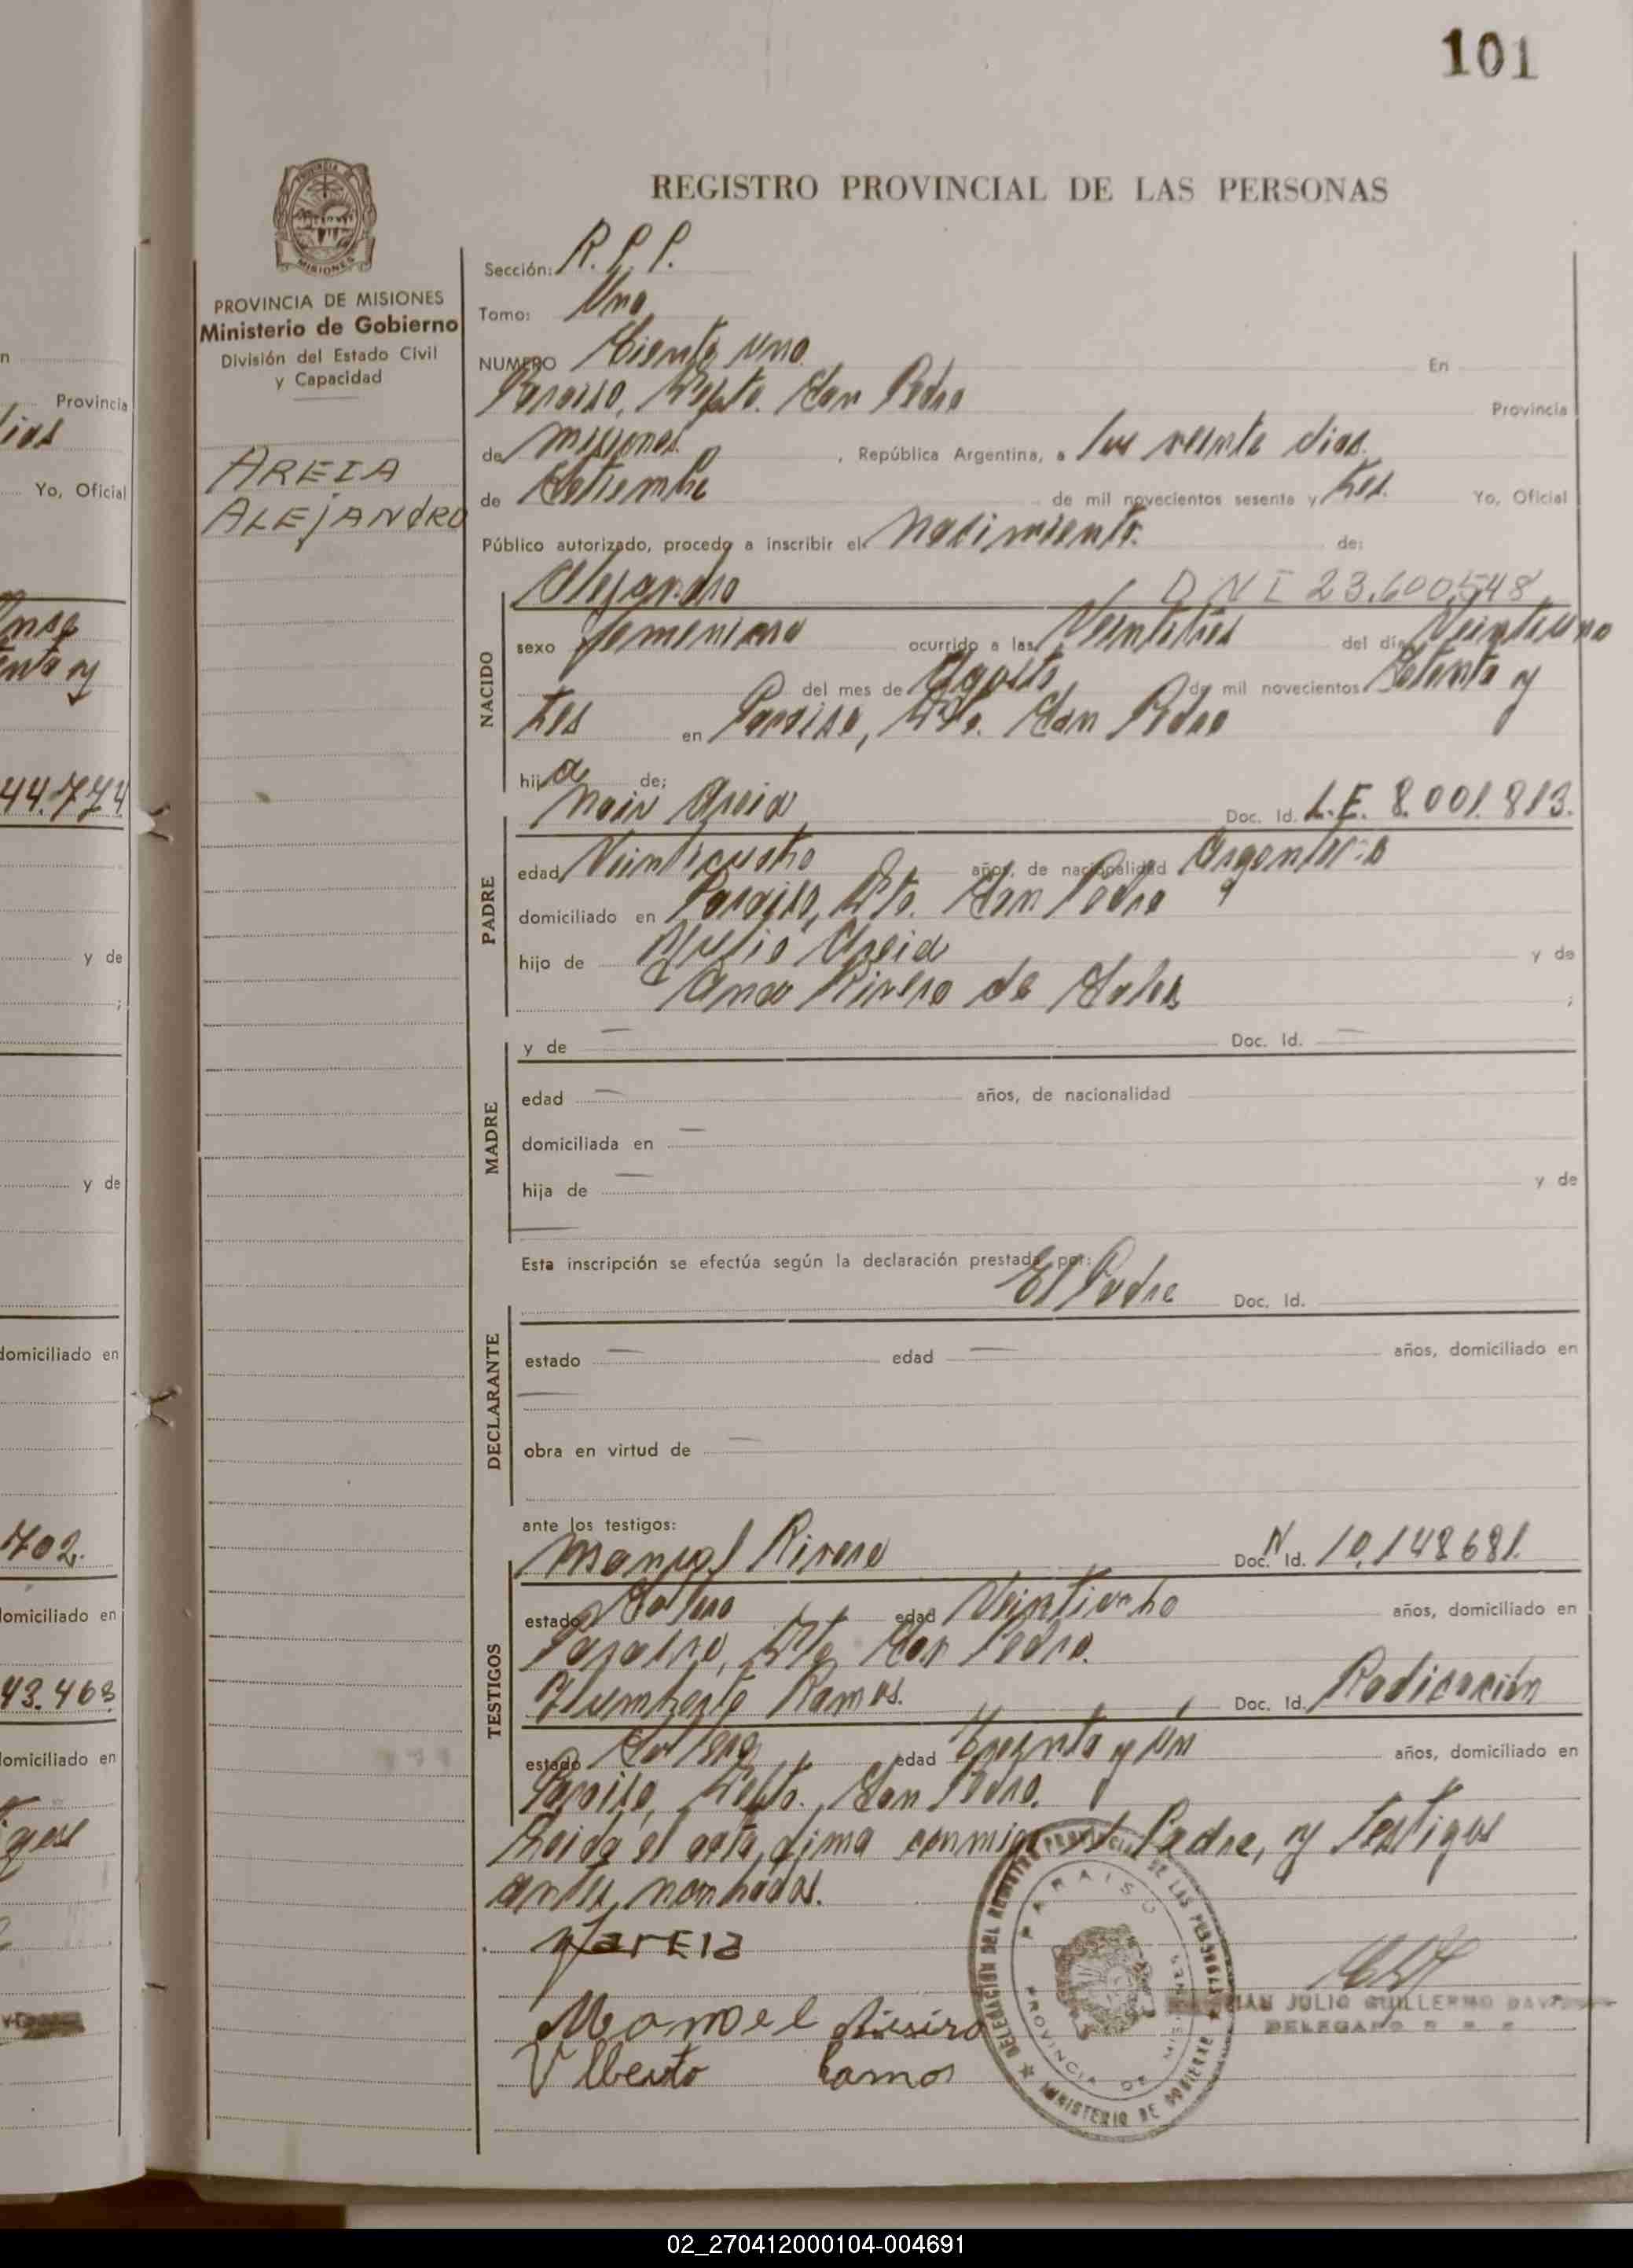 101
REGISTRO PROVINCIAL DE LAS PERSONAS
PROVINCIA DE MISIONES
Ministerio de Gobierno
División del Estado Civil
y Capacidad
AREIA
ALEJANDRO
Sección: R. P. P.
Tomo: Uno
NUMERO Ciento uno. En
Paraiso, Depto. San Pedro Provincia
de misiones. , República Argentina, a los veinte dias
de Setiembre de mil novecientos sesenta y tres. Yo, Oficial
Público autorizado, procedo a inscribir el Nacimiento. de:
Alejandro DNI 23.600.548
NACIDO
sexo femenino ocurrido a las Veintitres del día Veintiuno
del mes de Agosto de mil novecientos Setenta y
tres en Paraiso, Dto. San Pedro
hija de;
PADRE
Nair Areia Doc. Id. L.E. 8.001.813.
edad Veinticuatro años, de nacionalidad Argentino
domiciliado en Paraiso, Dto. San Pedro
hijo de Julio Areia y de
Ana Rivero de Sales ;
MADRE
y de — Doc. Id. —
edad — años, de nacionalidad
domiciliada en —
hija de — y de
—
Esta inscripción se efectúa según la declaración prestada por:
El Padre Doc. Id.
DECLARANTE
estado — edad — años, domiciliado en
—
obra en virtud de —
ante los testigos:
TESTIGOS
Manoel Rivero Doc. N Id. 10.148681.
estado Soltero edad Veintiocho años, domiciliado en
Paraiso, Dto San Pedro.
Humberto Ramos. Doc. Id. Radicación
estado Soltero edad Treinta y Un años, domiciliado en
Paraiso, Depto. San Pedro.
Leida el acta, firma conmigo el Padre, y testigos
antes nombrados.
Areia
Manoel
Ramos
DELEGACION DEL REGISTRO PROVINCIAL DE LAS PERSONAS
PARAISO
PROVINCIA DE MISIONES
MINISTERIO DE GOBIERNO
JULIO GUILLERMO
DELEGADO
44.774
702.
43.463
n
Provincia
Yo, Oficial
y de
;
y de
domiciliado en
domiciliado en
domiciliado en
02_270412000104-004691